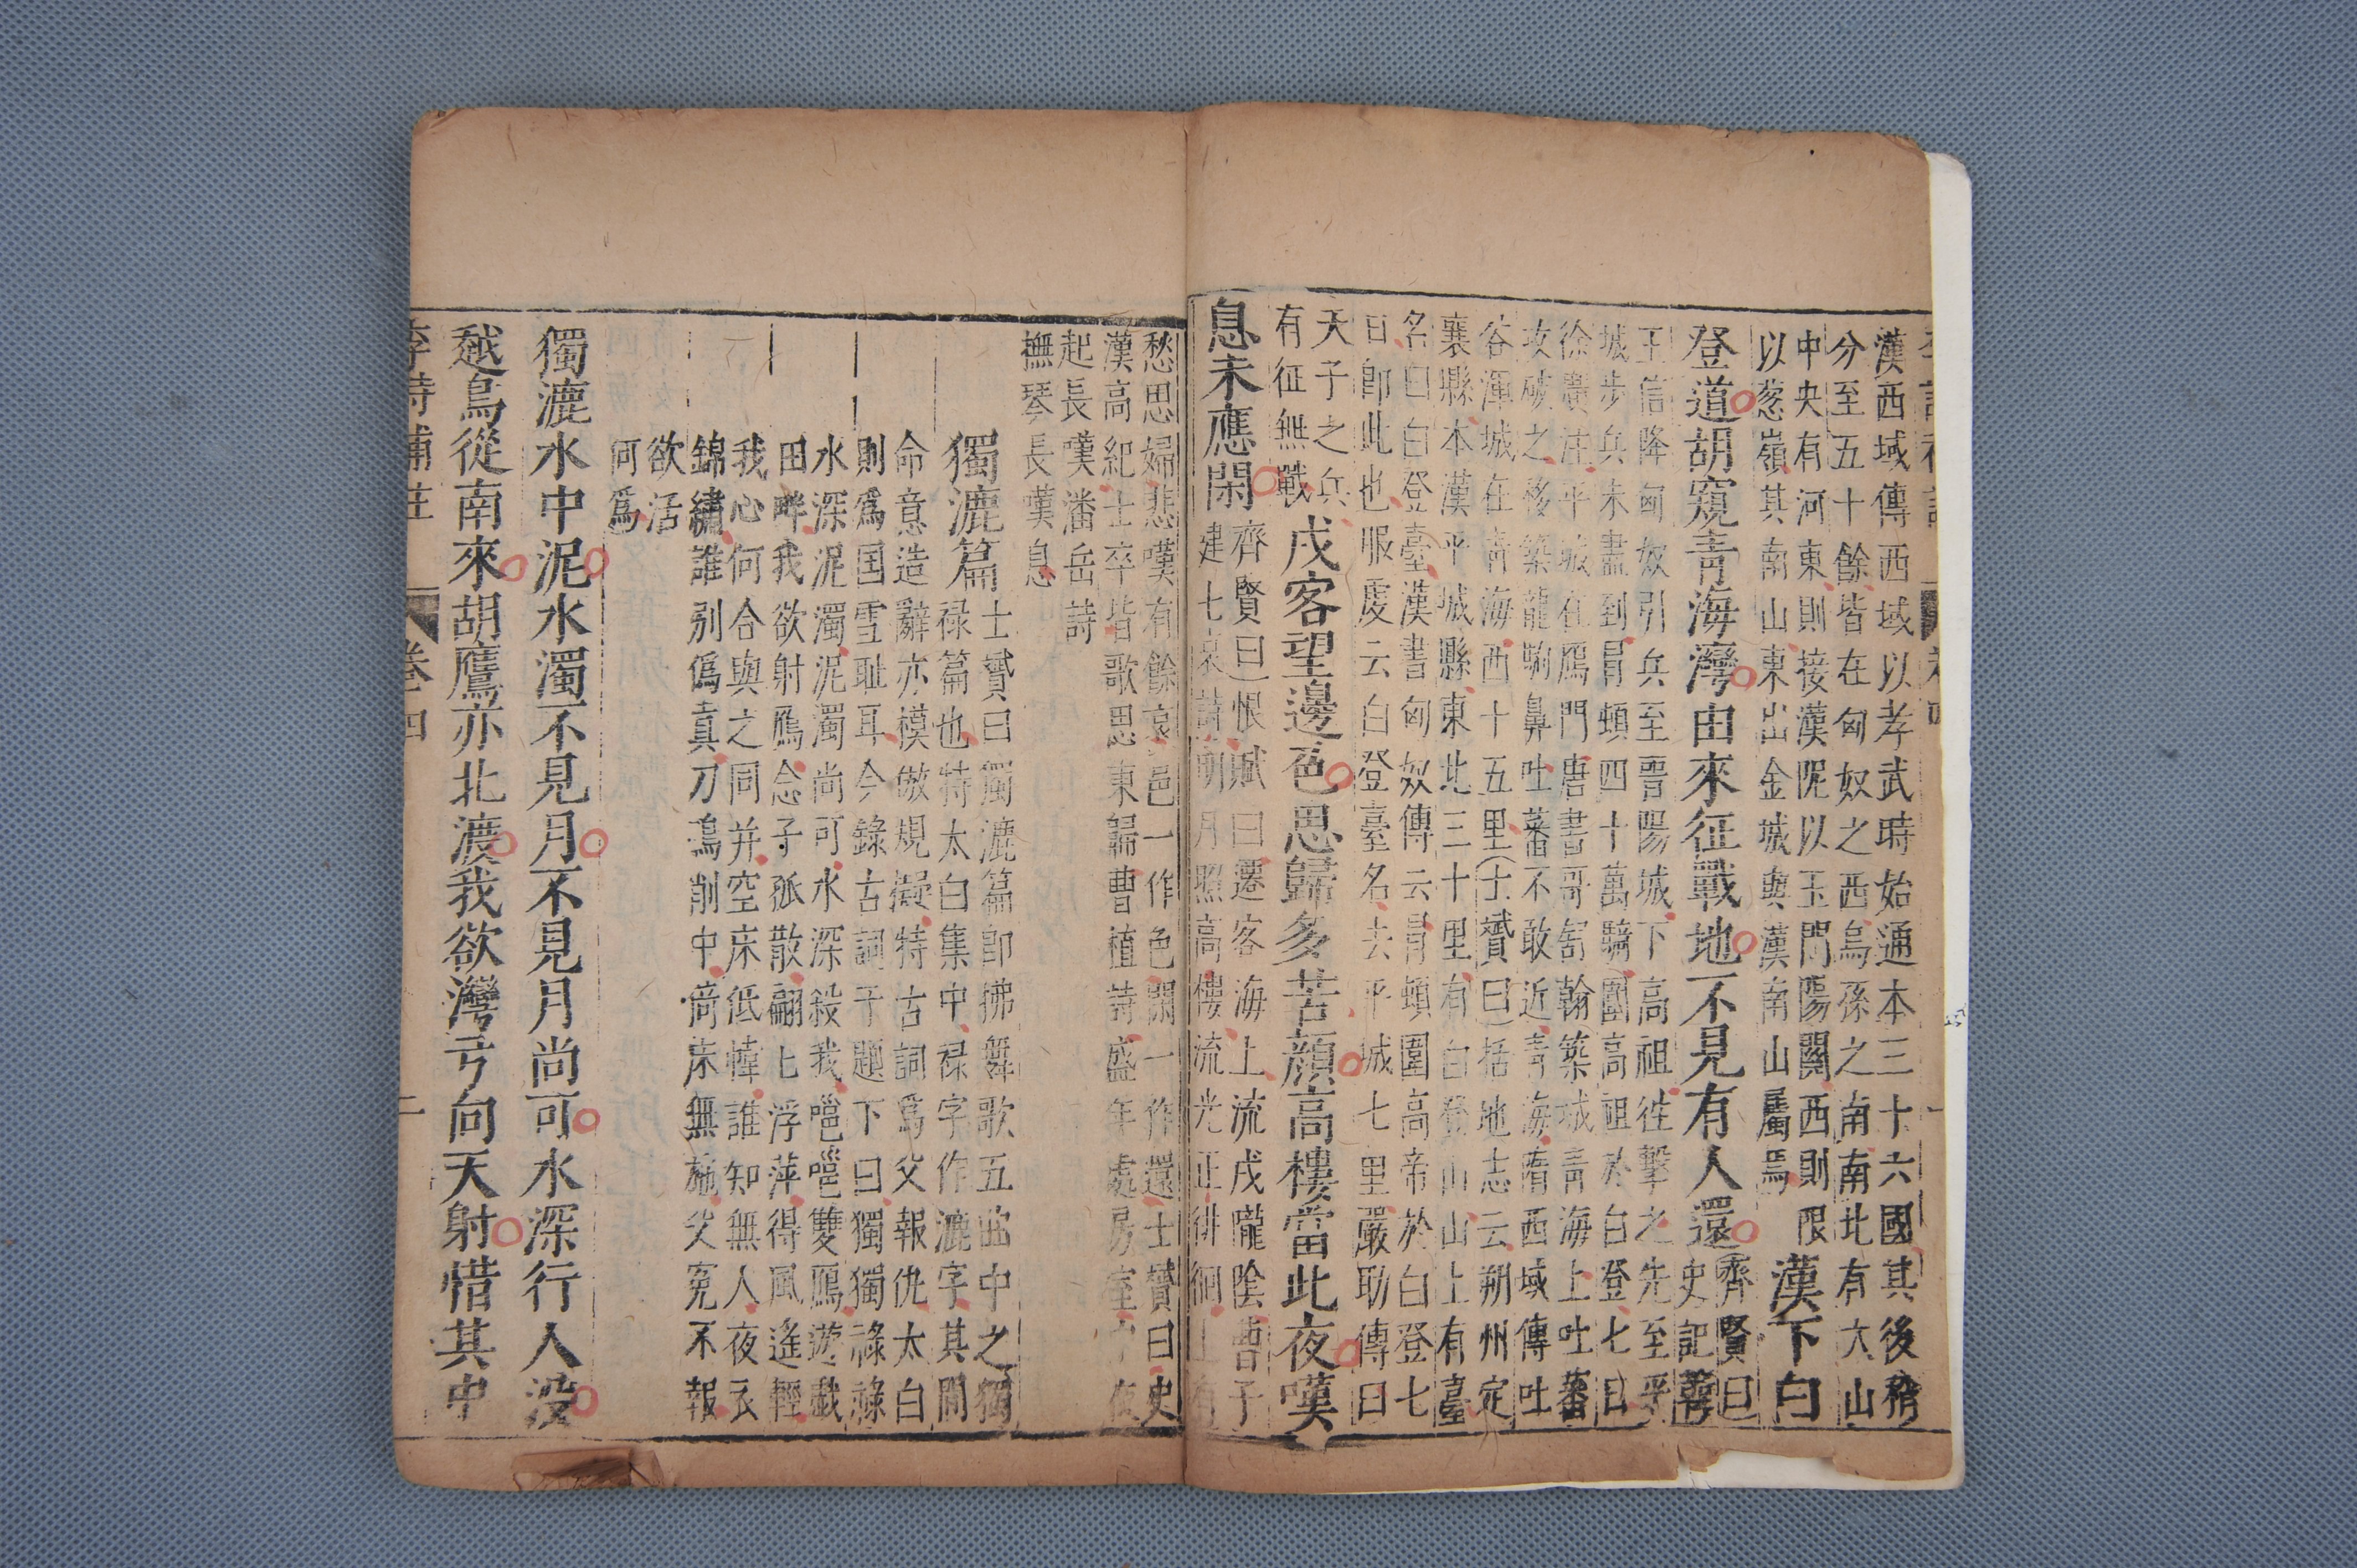 漢西域傳西域以孝武時始通本三十六國其後稍
分至五十餘皆在匈奴之西烏孫之南南北有大山
中央有河東則接漢阸以玉門陽關西則限
以葱嶺其南山東出金城與漢南山屬焉
漢下白
登道胡窺青海灣由來征戰地不見有人還
齊賢曰
史記
王信降匈奴引兵至晋陽城下高祖徃擊之先至平
城步兵未盡到冒頓四十萬騎圍高祖於白登七日
徐廣注平城在鴈門唐書哥舒翰築城青海上吐蕃
攻破之移築龍駒鼻吐蕃不敢近青海隋西域傳吐
谷渾城在青海西十五里士贇曰括地志云朔州定
襄縣本漢平城縣東北三十里有白登山山上有臺
名曰白登臺漢書匈奴傳云冒頓圍高帝於白登七
日即此也服虔云白登臺名去平城七里嚴助傳曰
天子之兵
有征無戰
戍客望邊色思歸多苦顔高樓當此夜嘆
息未應閑
齊賢曰恨賦曰遷客海上流戍隴陰曹子
建七哀詩明月照高樓流光正徘徊上有
愁思婦悲嘆有餘哀邑一作色閑一作還士贇曰史
漢高紀士卒皆歌思東歸曹植詩盛年處房室中夜
起長嘆潘岳詩
撫琴長嘆息
獨漉篇
士贇曰獨漉篇即拂舞歌五曲中之獨
祿篇也特太白集中祿字作漉字其間
命意造辭亦模倣規擬特古詞爲父報仇太白
則爲国雪耻耳今錄古詞于題下曰獨獨祿祿
水深泥濁泥濁尚可水深殺我嗈嗈雙鴈遊戲
田畔我欲射鴈念子孤散翩匕浮萍得風遙輕
我心何合與之同并空床低幃誰知無人夜衣
錦繡誰别僞真刀鳴削中倚床無施父寃不報
欲活
何爲
獨漉水中泥水濁不見月不見月尚可水深行人没
越鳥從南來胡鷹亦北渡我欲灣弓向天射惜其中
李詩補註 卷四 二